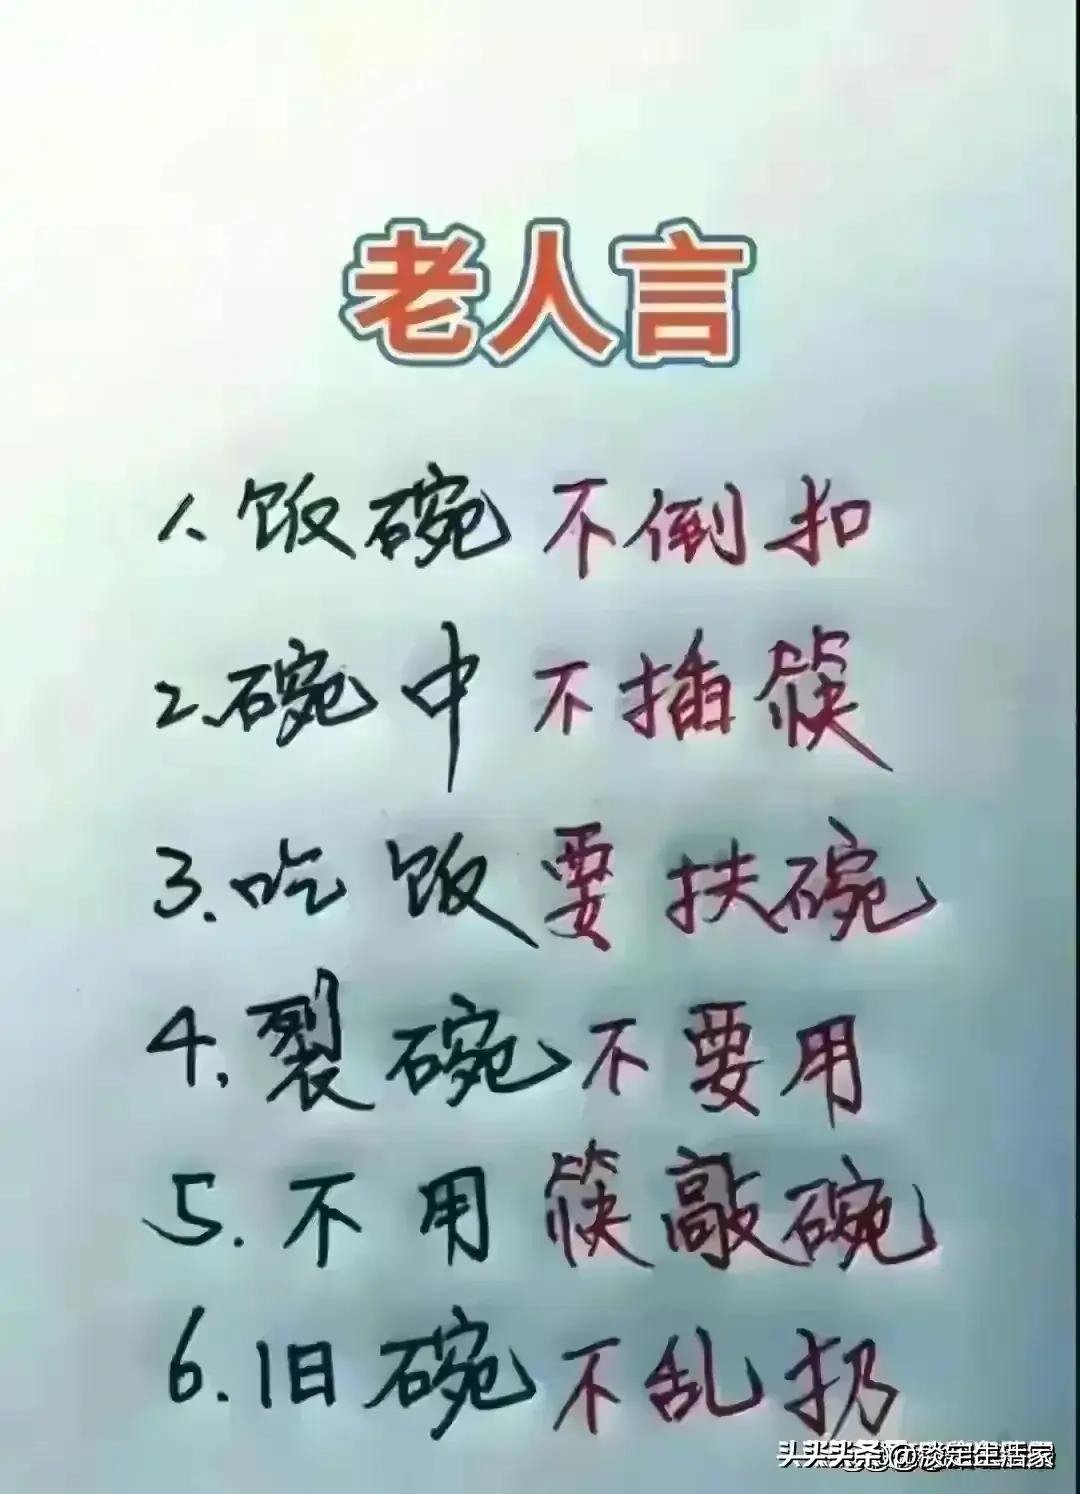 老人言
1、饭碗不倒扣
2、碗中不插筷
3.吃饭要扶碗
4.裂碗不要用
5.不用筷敲碗
6.旧碗不乱扔
头条 @淡定生活家